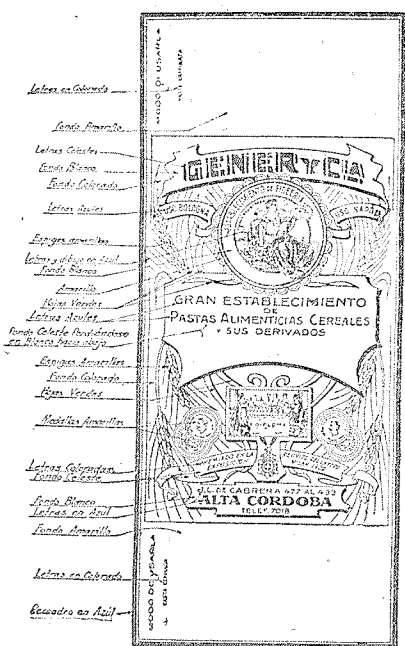 Letras en Colorado
Fondo Amarillo
Letras Celestes
Fondo Blanco
Fondo Colorado
Letras Azules
Espigas amarillas
Letras y dibujo en Azul
Fondo Blanco
Amarillo
Hojas Verdes
Letras Azules
Fondo Celeste Perdiéndose
en Blanco hacia abajo
Espigas Amarillas
Fondo Colorado
Hojas Verdes
Medallas Amarillas
Letras Coloradas
Fondo Celeste
Fondo Blanco
Letras en Azul
Fondo Amarillo
Letras en Colorado
Recuadro en Azul
MODO DE USARLA
GENER Y CIA
BOLOGNA
USO NAPOLI
GRAN ESTABLECIMIENTO
DE
PASTAS ALIMENTICIAS CEREALES
Y SUS DERIVADOS
PREMIADO EN LA
J.L. DE CABRERA 477 AL 499
ALTA CORDOBA
TELEF. 7018
MODO DE USARLA